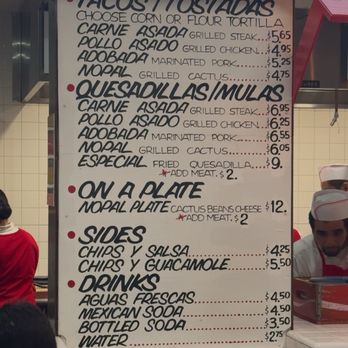 TACOS/TOSTADAS
CHOOSE CORN OR FLOUR TORTILLA
CARNE ASADA GRILLED STEAK...$5.65
POLLO ASADO GRILLED CHICKEN...$4.95
ADOBADA MARINATED PORK...$5.25
NOPAL GRILLED CACTUS...$4.75
QUESADILLAS/MULAS
CARNE ASADA GRILLED STEAK...$6.95
POLLO ASADO GRILLED CHICKEN...$6.25
ADOBADA MARINATED PORK...$6.55
NOPAL GRILLED CACTUS...$6.05
ESPECIAL FRIED QUESADILLA...$9.
*ADD MEAT. $2.
ON A PLATE
NOPAL PLATE CACTUS BEANS CHEESE $12.
*ADD MEAT. $2
SIDES
CHIPS Y SALSA...$4.25
CHIPS Y GUACAMOLE...$5.50
DRINKS
AGUAS FRESCAS...$4.50
MEXICAN SODA...$4.50
BOTTLED SODA...$3.50
WATER...$2.75